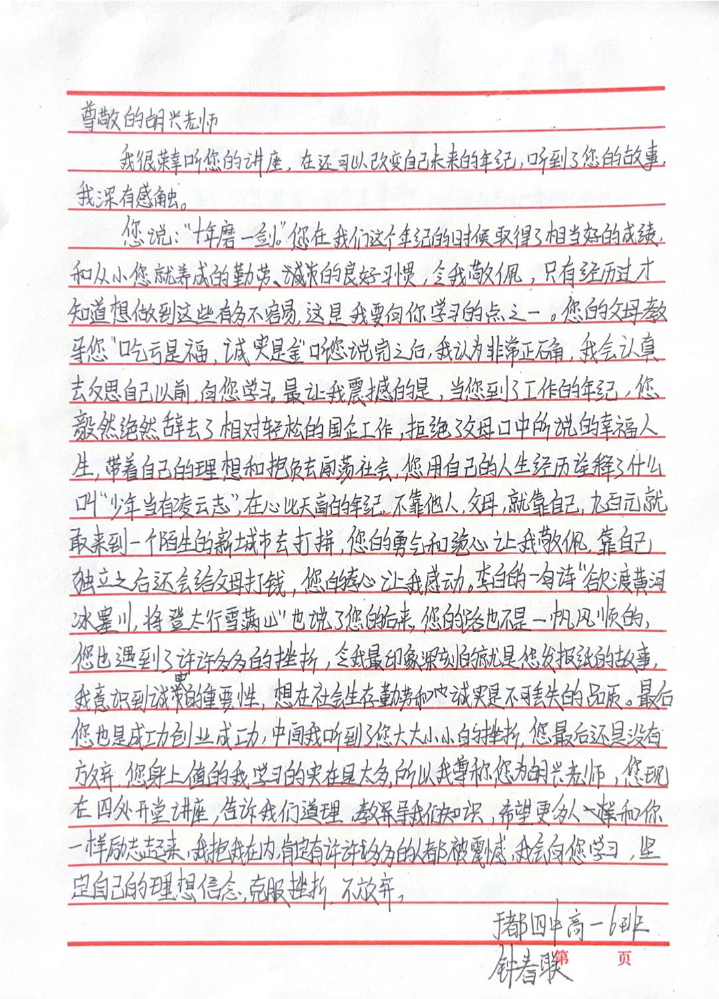 尊敬的胡兴老师
我很荣幸听您的讲座，在还可以改变自己未来的年纪，听到了您的故事，
我深有感触。
您说：“十年磨一剑。”您在我们这个年纪的时候取得了相当好的成绩，
和从小您就养成的勤劳、诚实的良好习惯，令我敬佩，只有经历过才
知道想做到这些有多不容易，这是我要向你学习的点之一。您的父母教
导您“吃亏是福，诚实是金”听您说完之后，我认为非常正确，我会认真
去反思自己以前，向您学习。最让我震撼的是，当您到了工作的年纪，您
毅然绝然辞去了相对轻松的国企工作，拒绝了父母口中所说的幸福人
生，带着自己的理想和抱负去闯荡社会，您用自己的人生经历诠释了什么
叫“少年当有凌云志”，在心比天高的年纪，不靠他人，父母，就靠自己，九百元就
敢来到一个陌生的新城市去打拼，您的勇气和绝心让我敬佩，靠自己
独立之后还会给父母打钱，您的孝心让我感动。李白的一句诗“欲渡黄河
冰塞川，将登太行雪满山”也说了您的后来，您的路也不是一帆风顺的，
您也遇到了许许多多的挫折，令我最印象深刻的就是您发报纸的故事，
我意识到诚实的重要性，想在社会生存勤劳和诚实是不可丢失的品质。最后
您也是成功创业成功，中间我听到了您大大小小的挫折，您最后还是没有
放弃，您身上值的我学习的实在是太多，所以我尊称您为胡兴老师，您现
在四外开堂讲座，告诉我们道理，教导我们知识，希望更多人一样和你
一样励志起来，我把我在内，肯定有许许多多的人都被震憾，我会向您学习，坚
定自己的理想信念，克服挫折，不放弃。
于都四中高一6班
钟春联
第 页